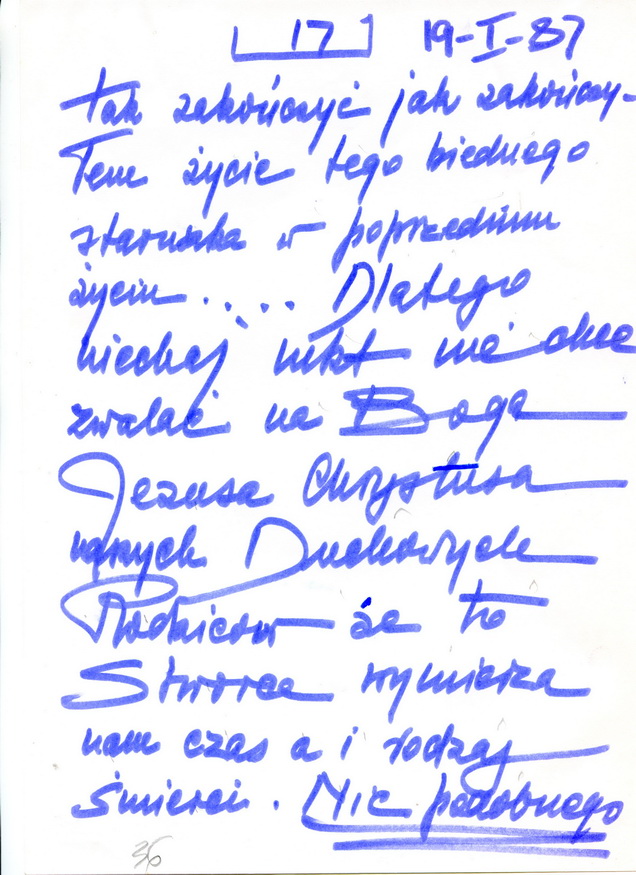 17 19-I-87
tak zakończyć jak zakończy-
łem życie tego biednego
staruszka w poprzednim
życiu.....Dlatego
niechaj nikt nie chce
zwalać na Boga
Jezusa Chrystusa
naszych Duchowych
Rodziców że to
Stwórca wymierza
nam czas a i rodzaj
śmierci. Nic podobnego
36